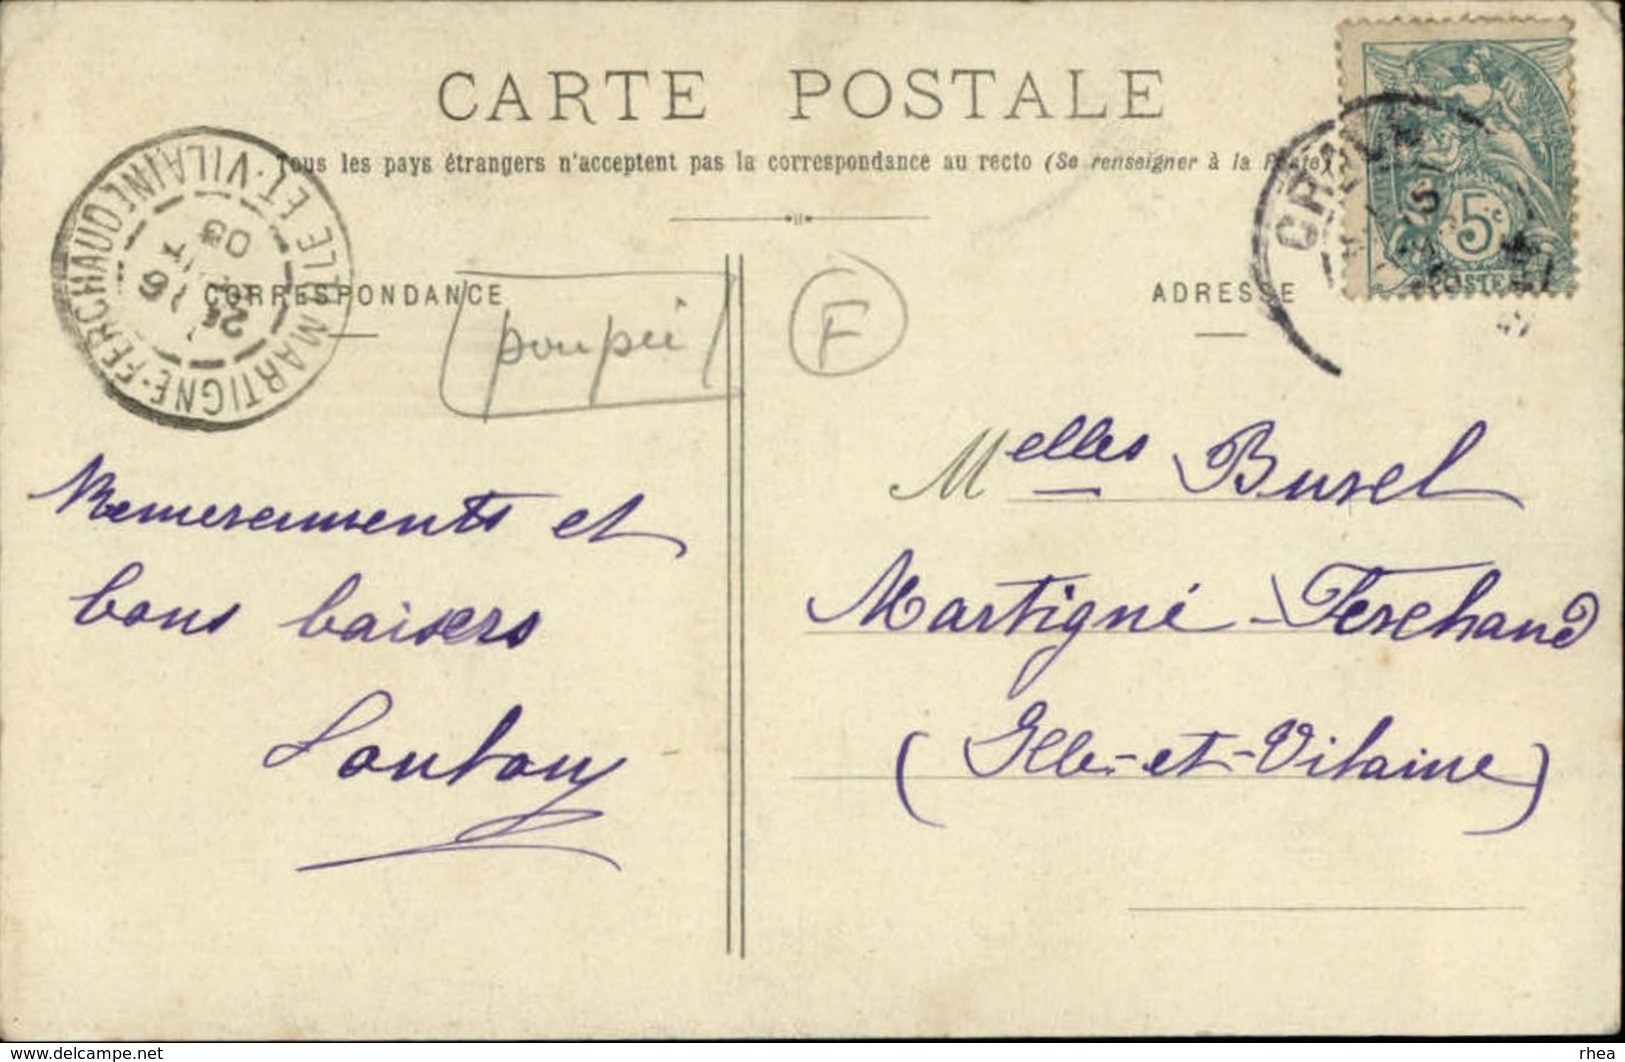 CARTE POSTALE
Tous les pays étrangers n'acceptent pas la correspondance au recto (Se renseigner à la Poste)
MARTIGNÉ-FERCHAUD
ILLE ET-VILAINE
25
16
03
CORRESPONDANCE
ADRESSE
poupée
F
5c
POSTE
Remerciements et
bons baisers
Melles Busel
Martigné-Ferchaud
(Ille-et-Vilaine)
www.delcampe.net
rhea